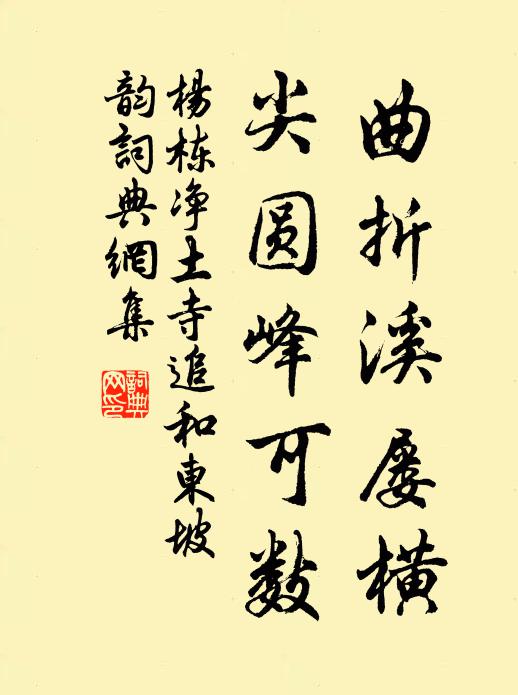 曲折溪屡横
尖圆峰可数
杨栋净土寺追和東坡
韵詞典網集
詞典
网印